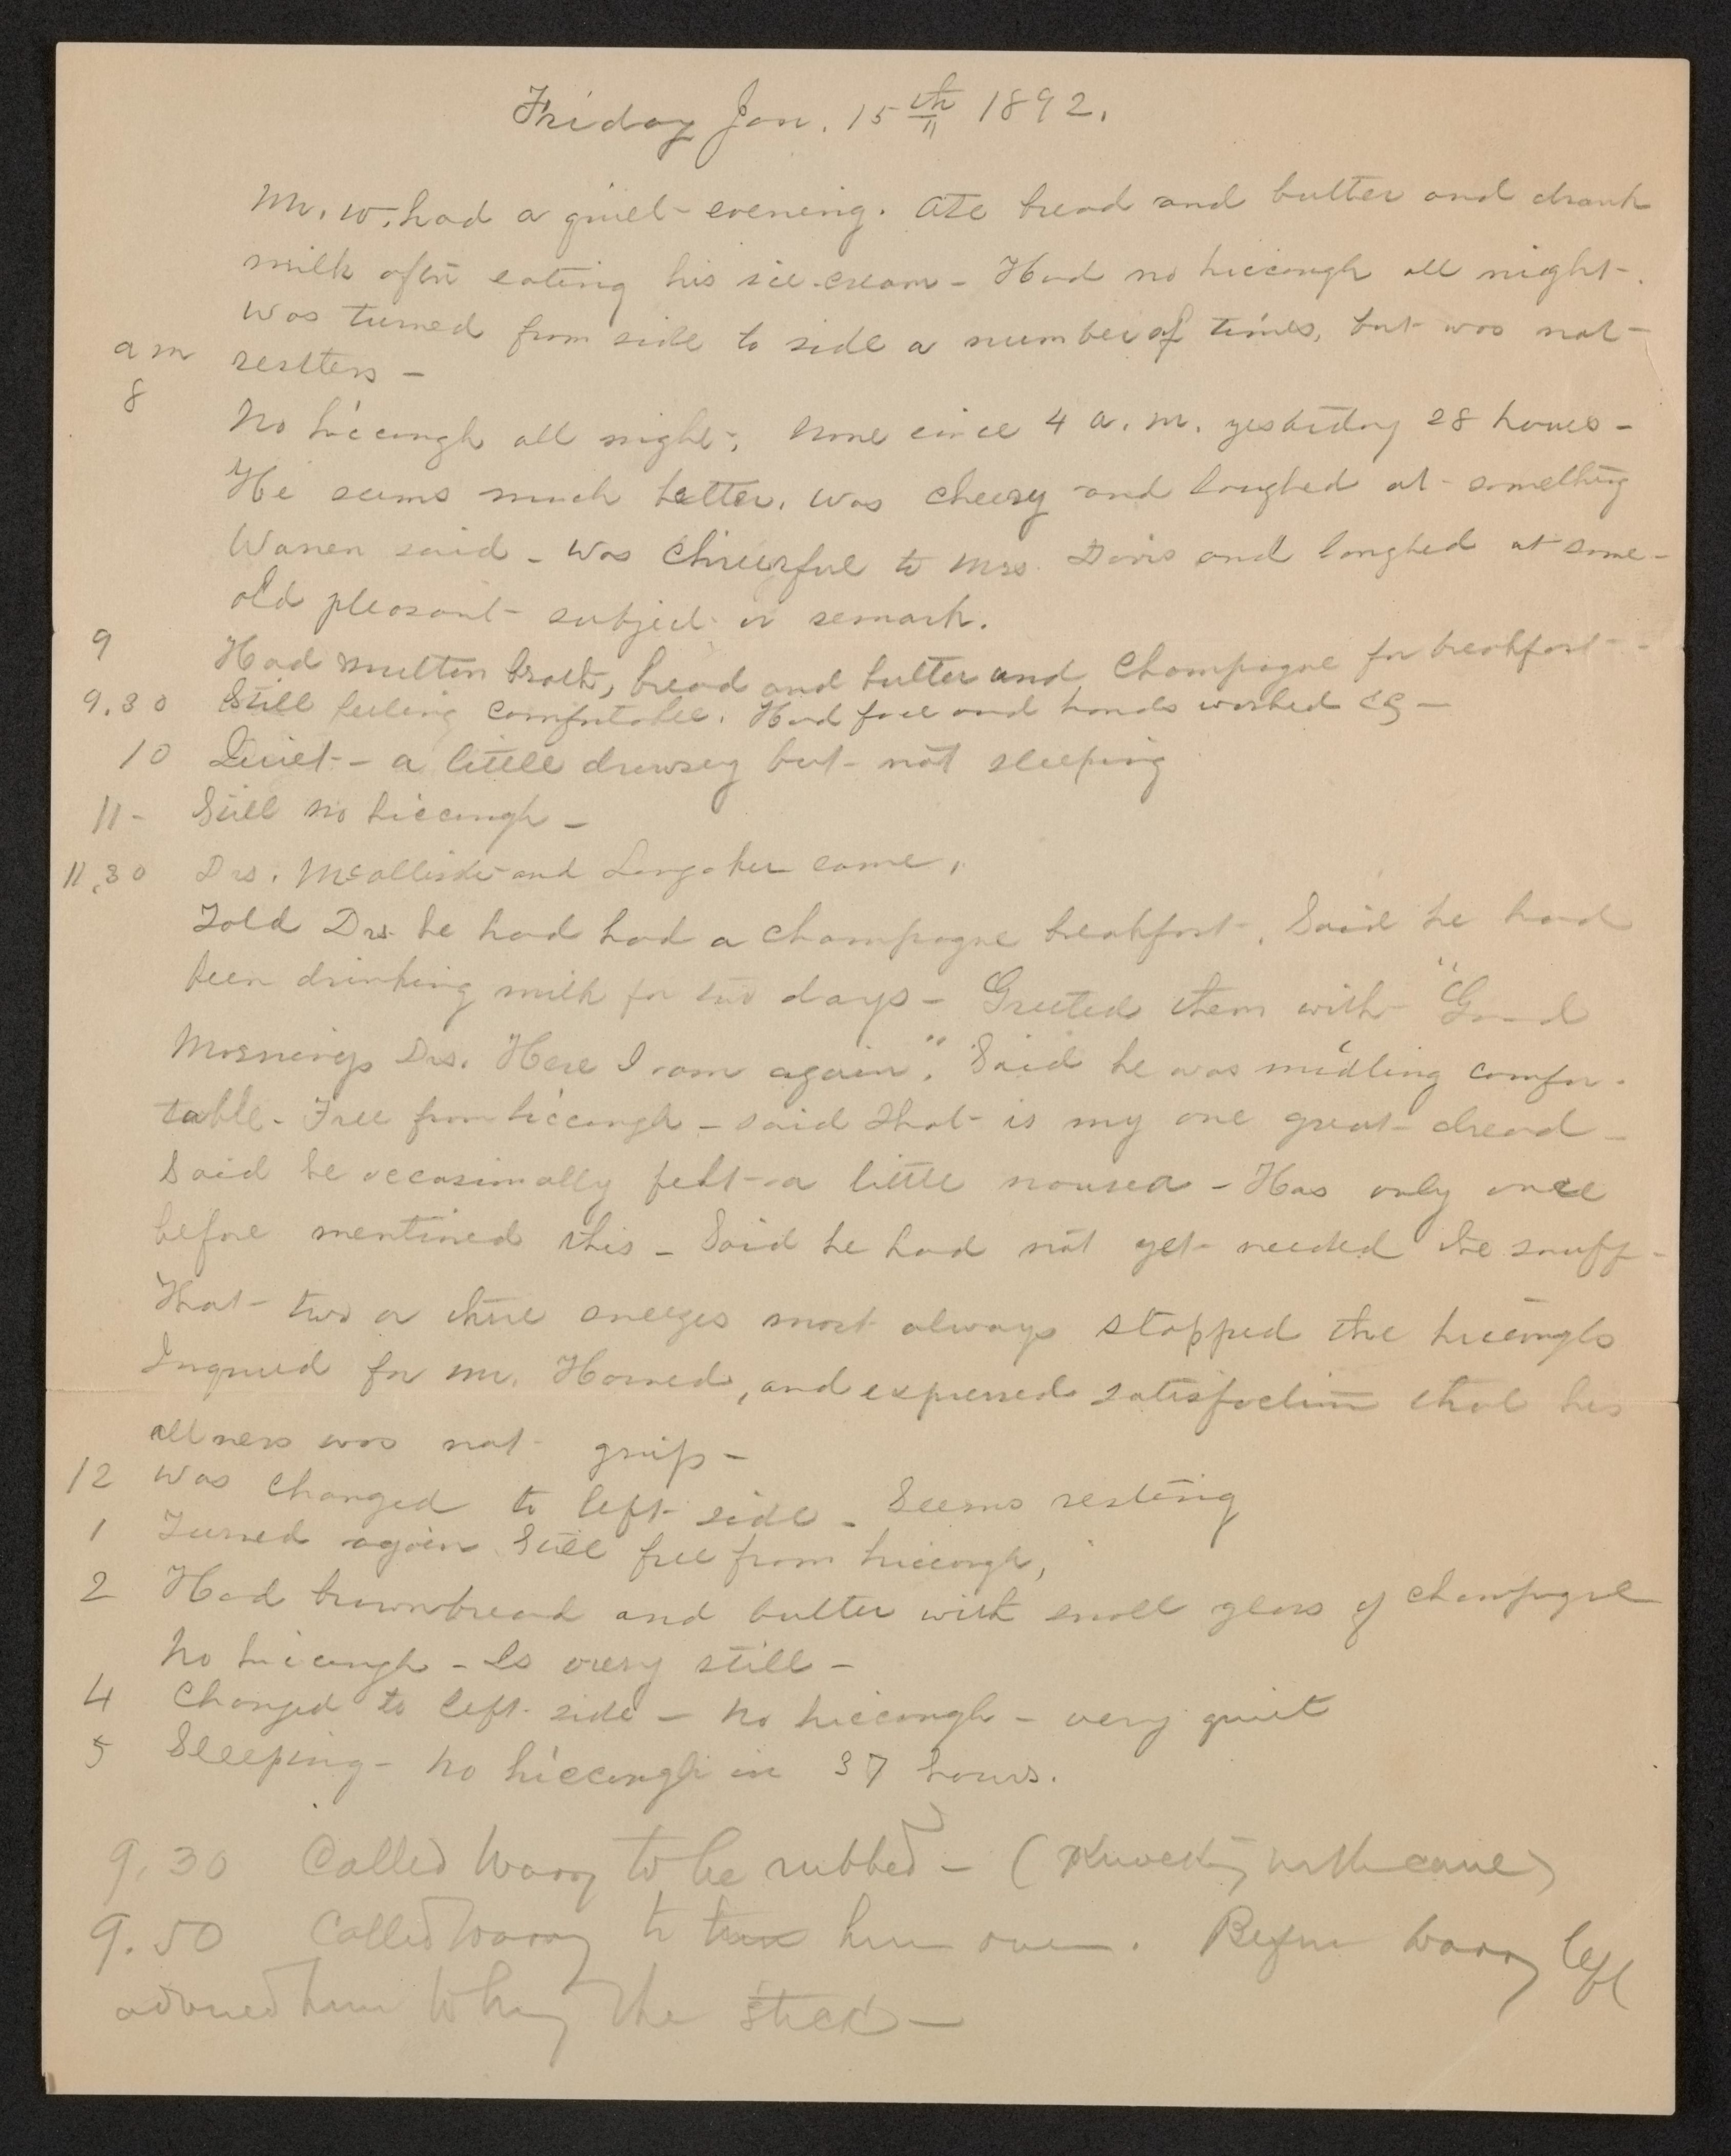 Friday Jan. 15th 1892.
Mr. W. had a quiet evening. Ate bread and butter and drank
milk after eating his ice-cream - Had no hiccough all night -.
Was turned from side to side a number of times, but was not
am restless -
8 No hiccough all night, none since 4 a.m. yesterday 28 hours -
He seems much better. Was cheery and laughed at something
Warren said - Was cheerful to Mrs. Davis and laughed at some-
old pleasant subject or remark.
9 Had mutton broth, bread and butter and champagne for breakfast -
9.30 Still feeling comfortable. Had face and hands washed &c -
10 Quiet - a little drowsey but not sleeping
11 - Still no hiccough -
11.30 Drs. McAllister and Longaker came,
Told Drs he had had a champagne breakfast. Said he had
been drinking milk for two days - Greeted them with "Good
Morning Drs. Here I am again". Said he was midling comfor-
table. Free from hiccough - said that is my one great dread -
Said he occasionally felt a little nausea - Has only once
before mentioned this - Said he had not yet needed the snuff -
That two or three sneezes most always stopped the hiccoughs
Inquired for Mr. Harned, and expressed satisfaction that his
illness was not grip -
12 Was changed to left side - Seems resting
1 Turned again Still free from hiccough,
2 Had brownbread and butter with small glass of champagne
No hiccough - Is very still -
4 Changed to left side - No hiccough - very quiet
5 Sleeping - No hiccough in 37 hours.
9.30 Called Warry to be rubbed - (Knocking with cane)
9.50 Called Warry to turn him over. Before Warry left
advised him to the stick -